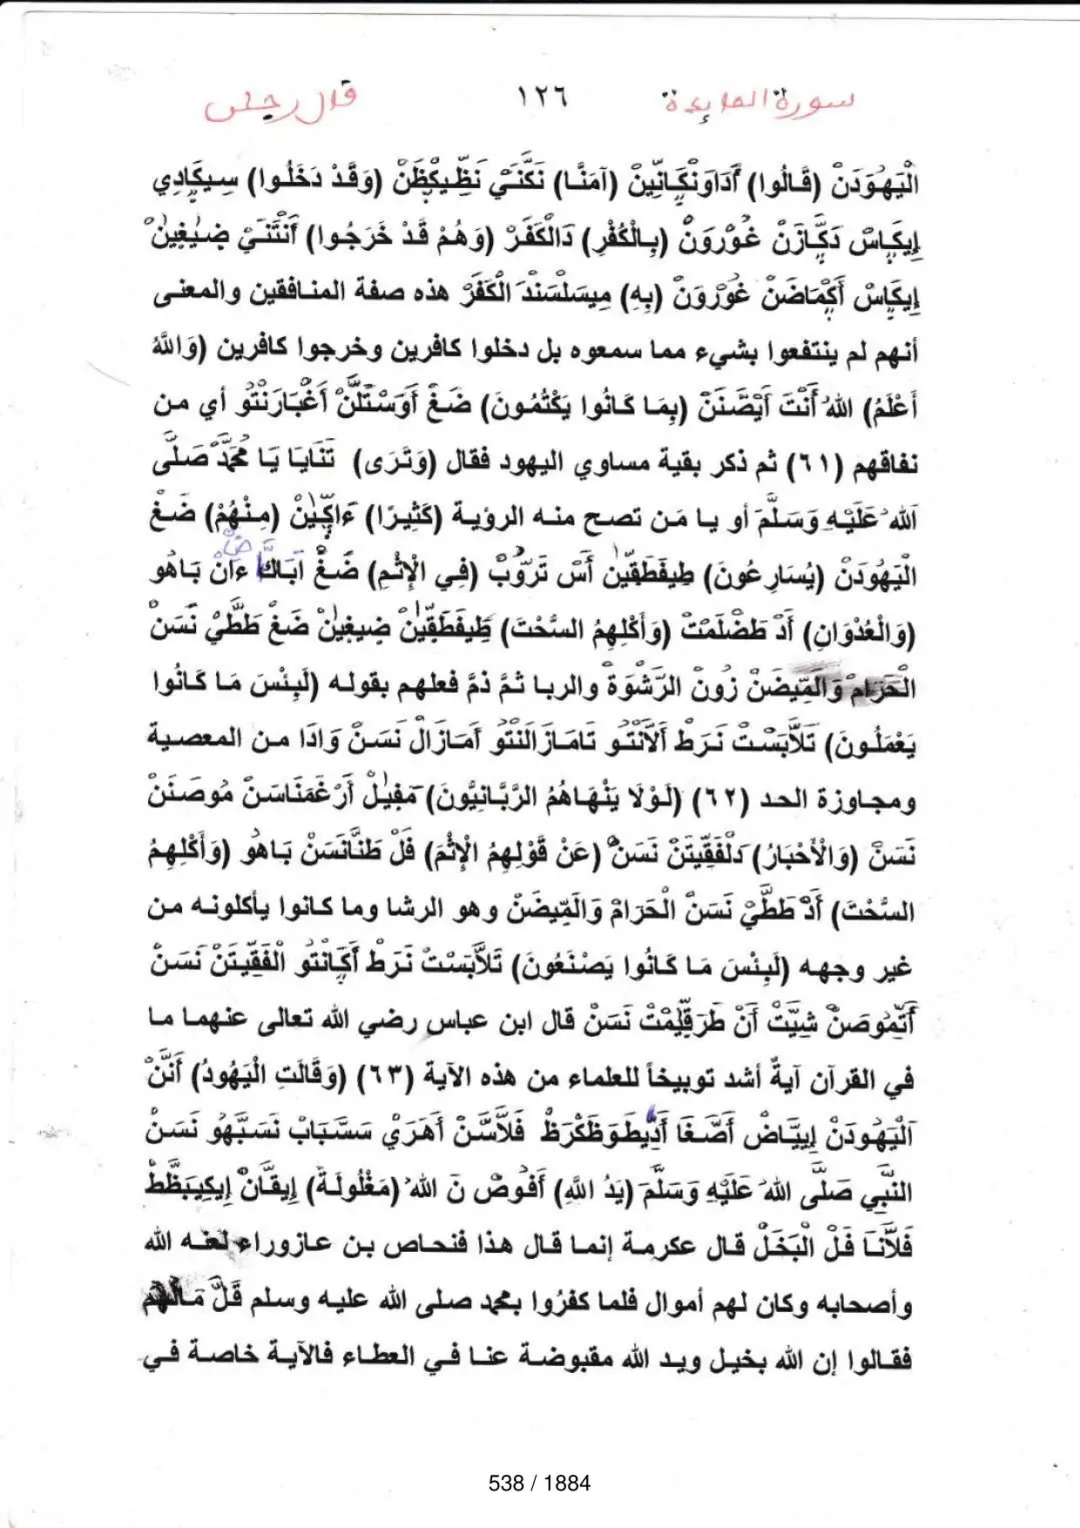 سورة المايدة ١٢٦ قال رجلن
الْيَهُودَنْ (قَالُوا) أَدَاوَنْكَانِّينْ (آمَنَّا) نَكَّنَيْ نَظِّيكْظَنْ (وَقَدْ دَخَلُوا) سِيكَادِي
إِيكَاسْ دَكَّازَنْ غُورَوَنْ (بِالْكُفْرِ) دَالْكَفَرْ (وَهُمْ قَدْ خَرَجُوا) أَنْتَنَيْ ضِيغِينْ
إِيكَاسْ أَكْمَاضَنْ غُورَوَنْ (بِهِ) مِيسَلْسَنْدَ الْكَفَرْ هذه صفة المنافقين والمعنى
أنهم لم ينتفعوا بشيء مما سمعوه بل دخلوا كافرين وخرجوا كافرين (وَاللَّهُ
أَعْلَمُ) اللهُ أَنْتَ أَيْصَّنَنْ (بِمَا كَانُوا يَكْتُمُونَ) ضَغْ أَوَسْتَلَّنْ أَغْبَارَنْتُو أي من
نفاقهم (٦١) ثم ذكر بقية مساوي اليهود فقال (وَتَرَى) تَنَايَا يَا مُحَمَّدْ صَلَّى
اللهُ عَلَيْهِ وَسَلَّمَ أو يا مَن تصح منه الرؤية (كَثِيرًا) ءَاكِّينْ (مِنْهُمْ) ضَغْ
الْيَهُودَنْ (يُسَارِعُونَ) طِيفَطَقِّينْ أَسْ تَرُّوبْ (فِي الْإِثْمِ) ضَغْ ءَانْ بَاهُو
(وَالْعُدْوَانِ) أَدْ طَضْلَمَتْ (وَأَكْلِهِمُ السُّحْتَ) طِيفَطَقِّينْ ضِيغِينْ ضَغْ طَطَّيْ نَسَنْ
الْحَرَامْ وَالْمِّيضَنْ زُونْ الرَّشْوَةْ والربا ثمَّ ذمَّ فعلهم بقوله (لَبِئْسَ مَا كَانُوا
يَعْمَلُونَ) تَلَّابَسْتْ نَرَطْ أَلَانْتُو تَامَازَالَنْتُو أَمَازَالْ نَسَنْ وَادَا من المعصية
ومجاوزة الحد (٦٢) (لَوْلَا يَنْهَاهُمُ الرَّبَّانِيُّونَ) مَفِيلْ أَرْغَمَنَاسَنْ مُوصَنَنْ
نَسَنْ (وَالْأَحْبَارُ) دَلْفَقِّيتَنْ نَسَنْ (عَنْ قَوْلِهِمُ الْإِثْمَ) فَلْ طَنَّانَسَنْ بَاهُو (وَأَكْلِهِمُ
السُّحْتَ) أَدْ طَطَّيْ نَسَنْ الْحَرَامْ وَالْمِّيضَنْ وهو الرشا وما كانوا يأكلونه من
غير وجهه (لَبِئْسَ مَا كَانُوا يَصْنَعُونَ) تَلَّابَسْتْ نَرَطْ أَكِّانْتُو الْفَقِّيتَنْ نَسَنْ
أَتَّمُوصَنْ شِيَّتْ أَنْ طَرَقِّيمْتْ نَسَنْ قال ابن عباس رضي الله تعالى عنهما ما
في القرآن آيةٌ أشد توبيخاً للعلماء من هذه الآية (٦٣) (وَقَالَتِ الْيَهُودُ) أَنَّنْ
الْيَهُودَنْ إِييَّاضْ أَصَّغَا أَدِّيطَوَظَكْرَظْ فَلَاسَّنْ أَهَرَيْ سَسَّبَابْ نَسَبَّهُو نَسَنْ
النَّبِي صَلَّى اللهُ عَلَيْهِ وَسَلَّمَ (يَدُ اللَّهِ) أَفُوصْ نَ اللهْ (مَغْلُولَةٌ) إِيقَّانْ إِيكِيبَظَّطْ
فَلَّانَا فَلْ الْبَخَلْ قال عكرمة إنما قال هذا فنحاص بن عازوراء لعنه الله
وأصحابه وكان لهم أموال فلما كفرُوا بمحمد صلى الله عليه وسلم قَلَّ مَالهم
فقالوا إن الله بخيل ويد الله مقبوضة عنا في العطاء فالآية خاصة في
538 / 1884